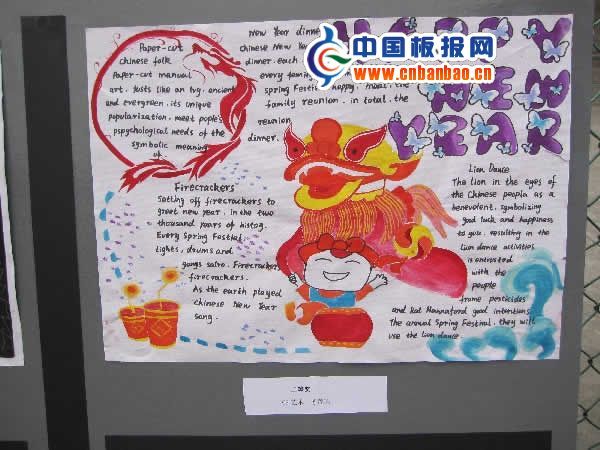 Paper-cut
chinese folk
Paper-cut manual
art. Justs like an Ivy, ancient
and evergreen. its unique
popularization. meet pople's
pspychological needs of the
symbolic meaning
of
New Year dinner
Chinese New Year
dinner. each
every family
spring Festival happy. meet. the
family reunion. in total. the
reunion
dinner.
中国板报网
www.cnbanbao.cn
Firecrackers
Setting off firecrackers to
greet new year. in the two
thousand years of histoy.
Every Spring Festival
lights, drums and
gongs salvo. Firecracker
firecrackers.
As the earth played
chinese New Year
song.
Lion Dance
The lion in the eyes of
the Chinese people as a
benevolent, symbolizing
good luck and happiness
to you. resulting in the
lion dance activities
is entrusted
with the
people
frome pesticides
and Kat Hannaford good intentions
The annual Spring Festival. they will
use the lion dance.
二等奖